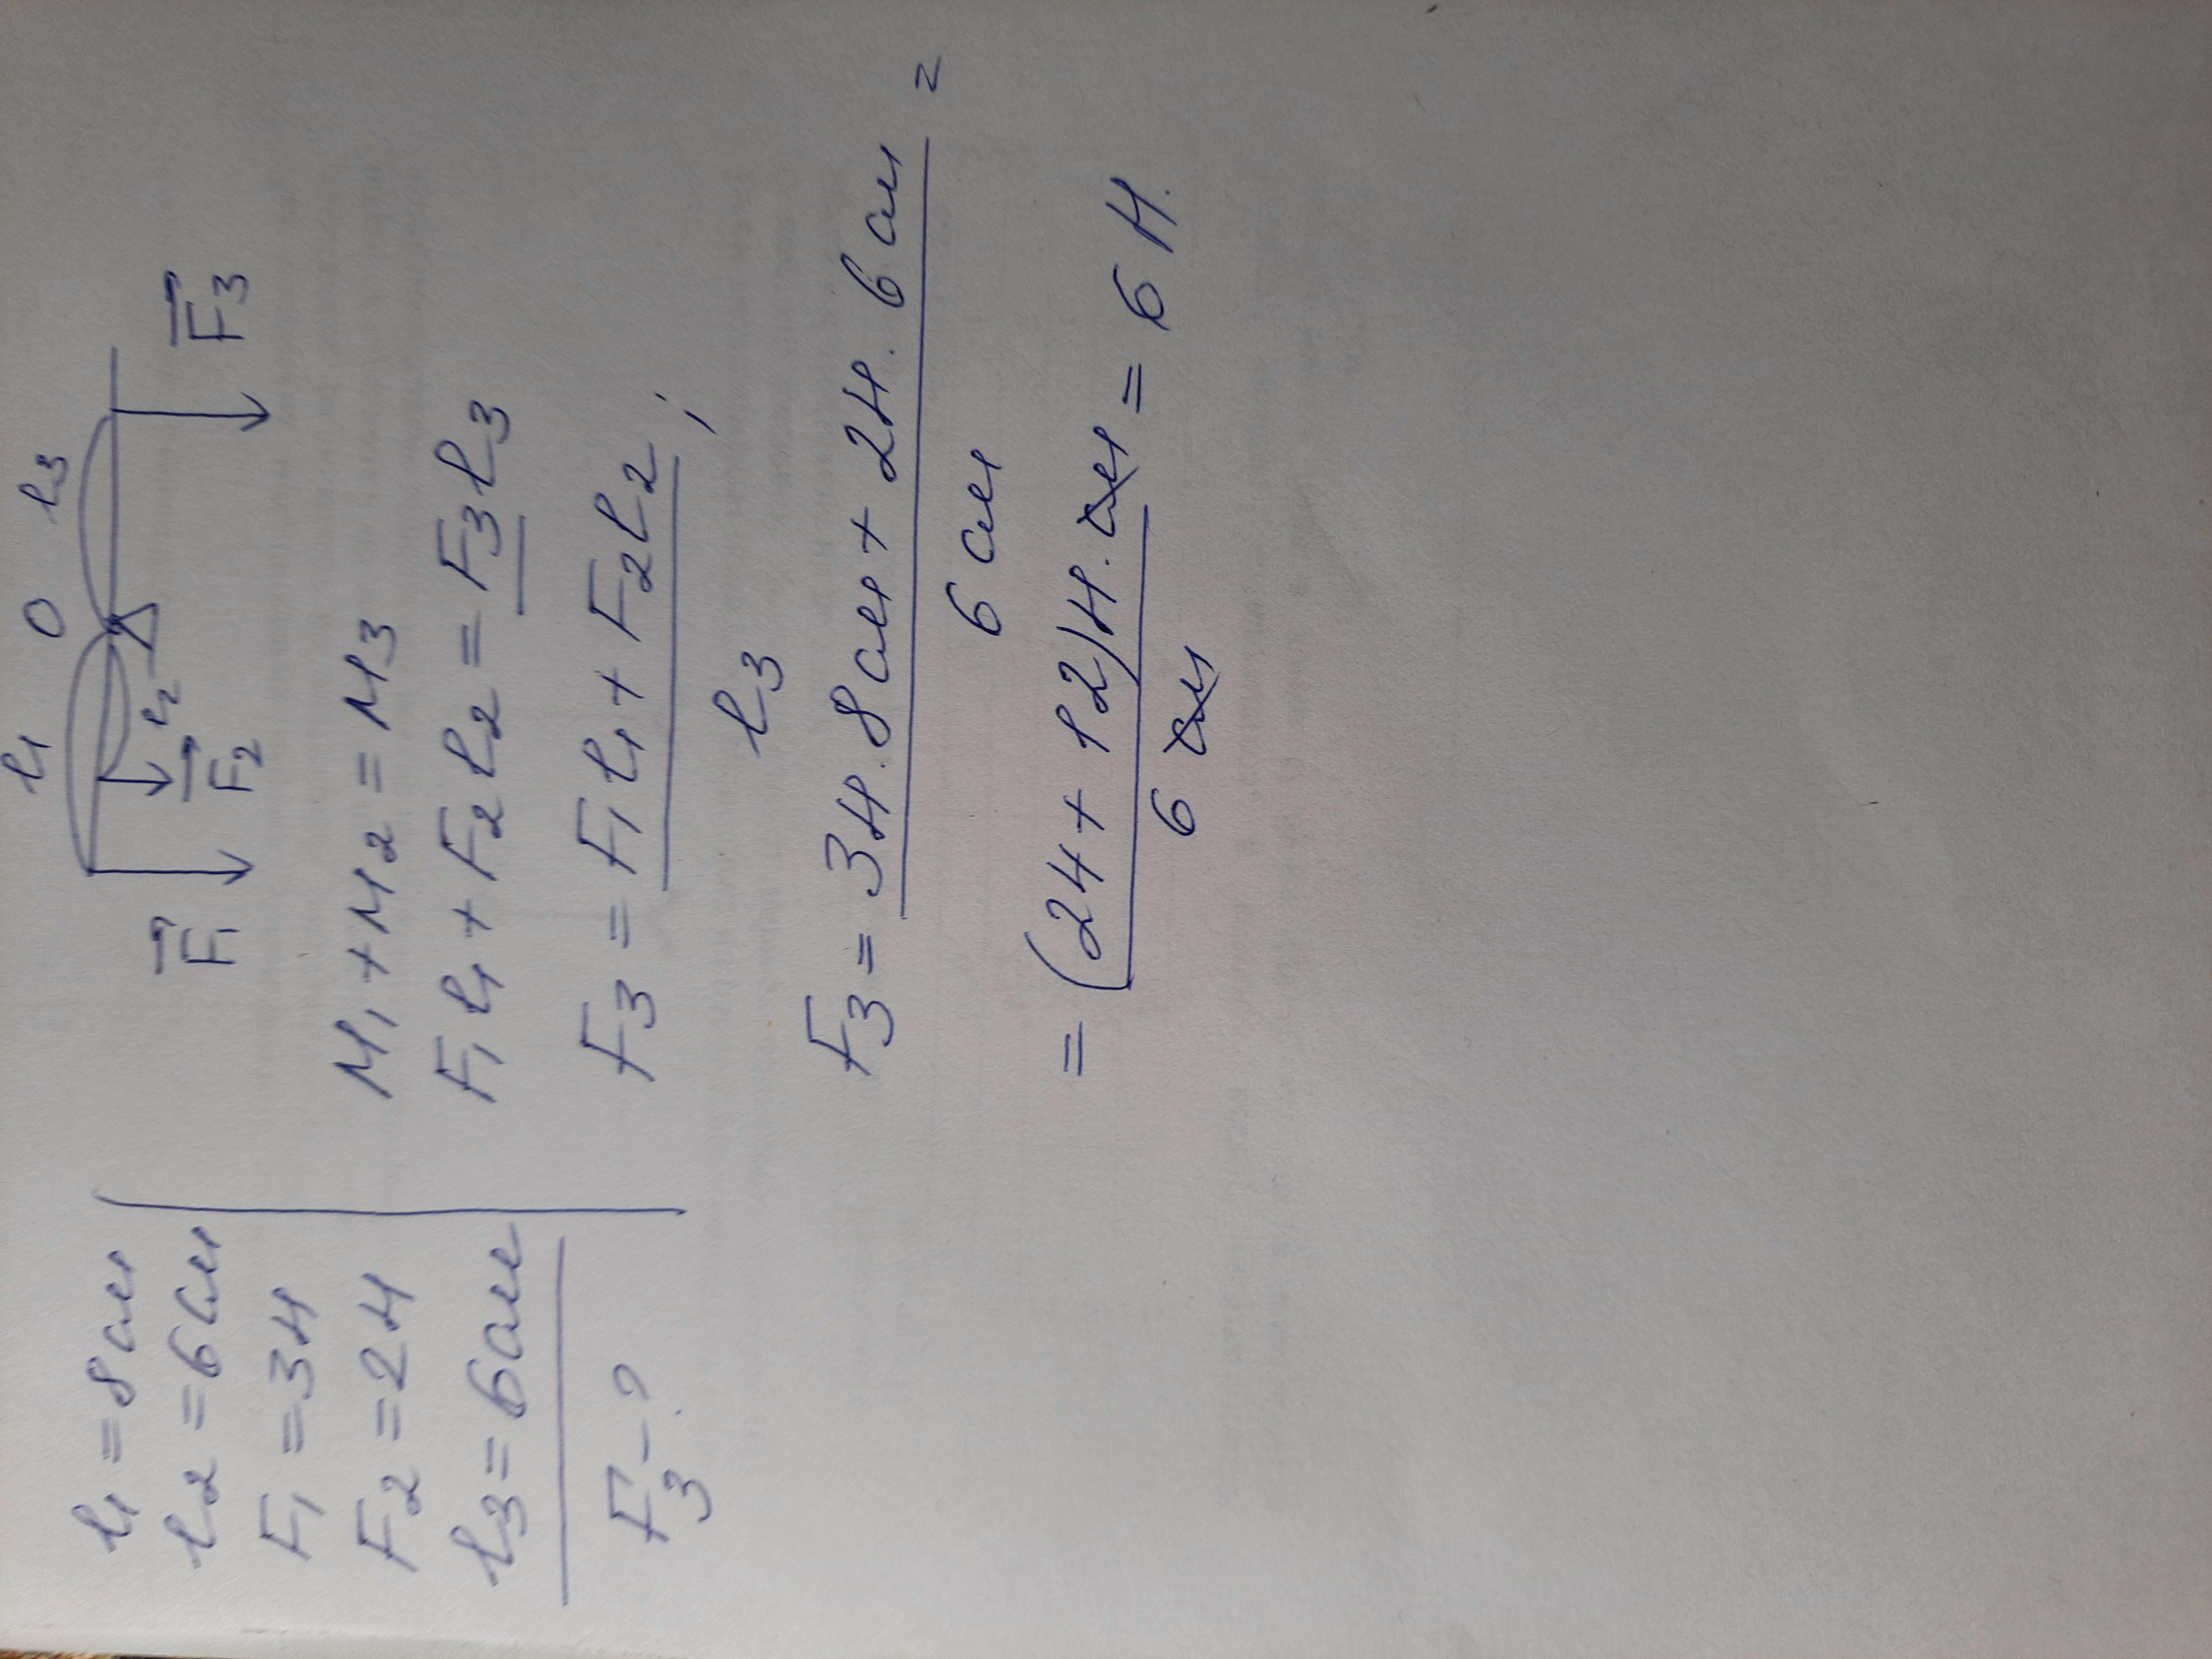 l₁ = 8 см
l₂ = 6 см
F₁ = 3 Н
F₂ = 2 Н
l₃ = 6 см
F₃ - ?
l₁ O l₃
l₂
F₁ F₂ F₃
M₁ + M₂ = M₃
F₁l₁ + F₂l₂ = F₃l₃
F₃ = F₁l₁ + F₂l₂ ;
l₃
F₃ = 3Н · 8 см + 2Н · 6 см =
6 см
= (24 + 12) Н · см = 6 Н.
6 см